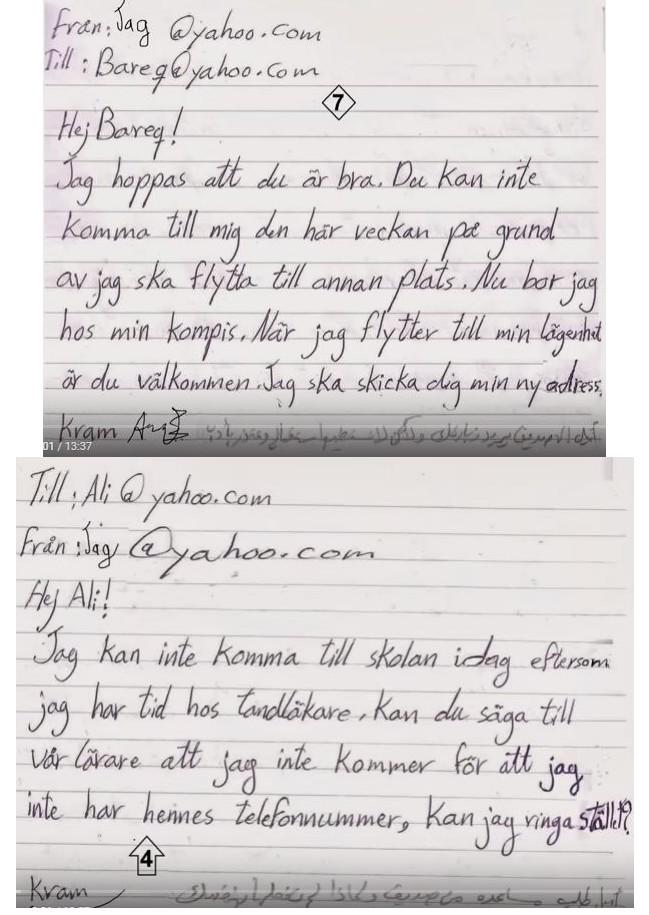 Från: Jag @yahoo.com
Till: Bareq@yahoo.com
7
Hej Bareq!
Jag hoppas att du är bra. Du kan inte
komma till mig den här veckan på grund
av jag ska flytta till annan plats. Nu bor jag
hos min kompis. När jag flytter till min lägenhet
är du välkommen. Jag ska skicka dig min ny adress.
Kram
01 / 13:37
Till: Ali@yahoo.com
Från: Jag @yahoo.com
Hej Ali!
Jag kan inte komma till skolan idag eftersom
jag har tid hos tandläkare, Kan du säga till
vår lärare att jag inte kommer för att jag
inte har hennes telefonnummer, Kan jag ringa stället?
4
Kram